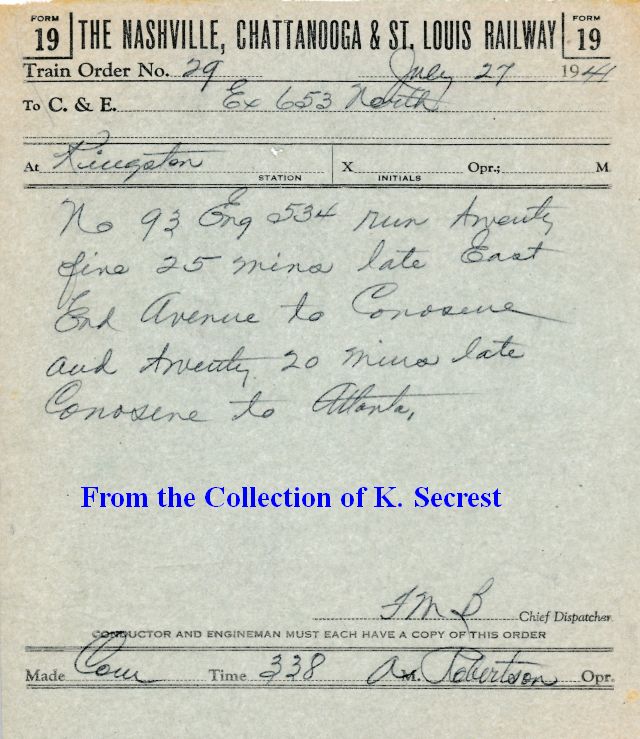 FORM 19 THE NASHVILLE, CHATTANOOGA & ST. LOUIS RAILWAY FORM 19
Train Order No. 29 July 27 1941
To C. & E. Ex 653 North
At Kingston STATION X INITIALS Opr.; M
No 93 Eng 534 run twenty
five 25 mins late East
End Avenue to Conosene
and twenty 20 mins late
Conosene to Atlanta.
From the Collection of K. Secrest
F M B Chief Dispatcher
CONDUCTOR AND ENGINEMAN MUST EACH HAVE A COPY OF THIS ORDER
Made Com Time 338 A M. Robertson Opr.